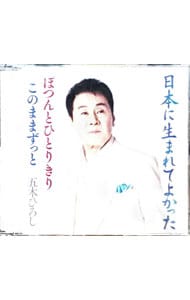 日本に生まれてよかった
ぽつんとひとりきり
このままずっと
五木ひろし